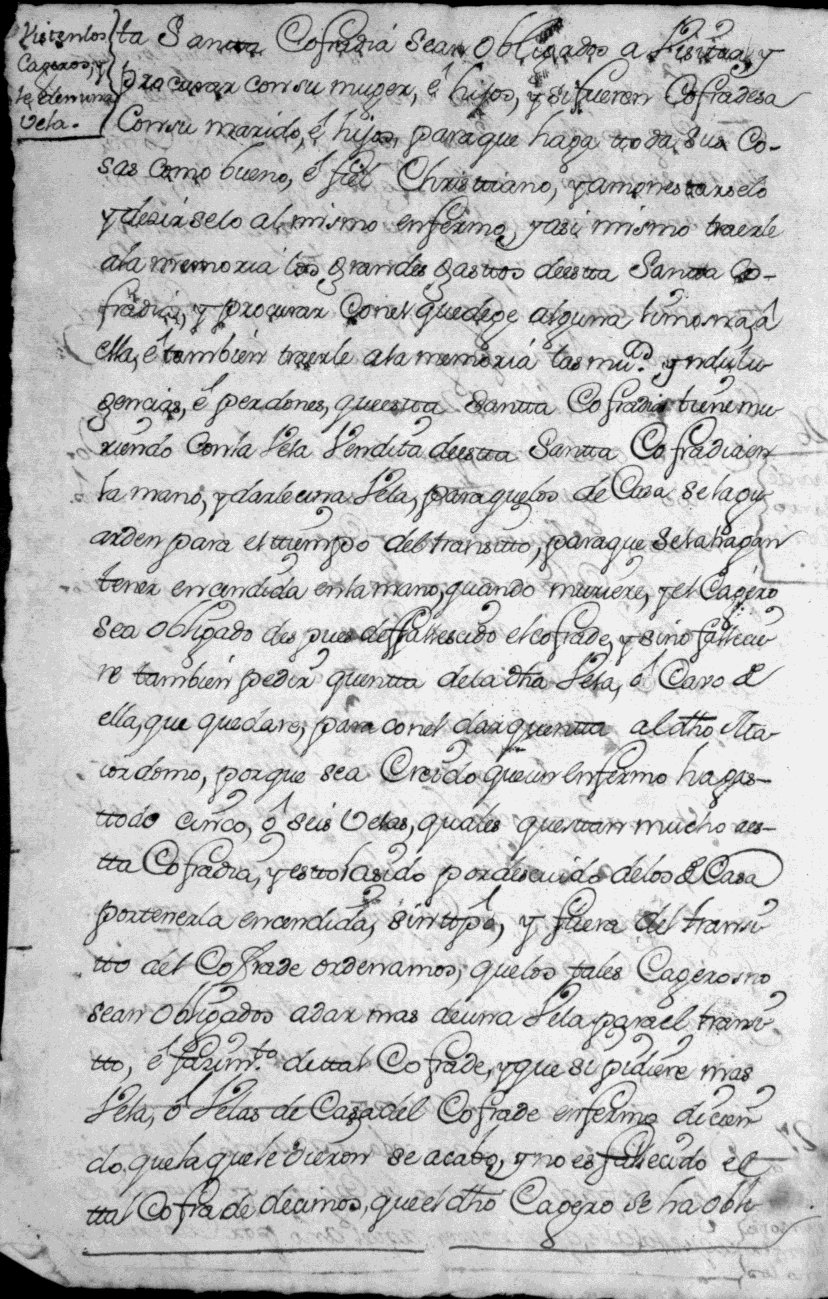 Visiten los
Cageros, y
le den una
Vela.
ta Santta Cofradiá sean Obligados a Visitar, y
procurar con su muger, é hijos, y si fueren Cofradesa
Con su marido, é hijos, para que haga ttodas sus Co-
sas Como bueno, é fiel Christtiano, y amonestarselo
y desirselo al mismo enfermo, y asi mismo traerle
ala memoriá los grandes gasttos deestta Santta Co-
fradiá, y procurar Conel quedege alguna limosna, á
ella, é tambien traerle ala memoriá las mu.as yndul
gencias, é perdones, queestta Santta Cofradia tiene mu
riendo Conla Vela Vendita deestta Santta Cofradia en
la mano, y darle una Vela, para quelos de Casa se la gu
arden para el ttiempo del transitto, paraque selahagan
tener encendida enla mano, quando muriere, y el Cagéro
sea Obligado des pues deffallescido el cofrade, y sino fallecie
re tambien pedir quentta dela dha Vela, ó Cavo de
ella, que quedare, para conel dar quentta al dho Ma
iordomo, porque sea Creido que un enfermo ha gas-
ttodo cinco, ó seis Velas, quales questtan mucho aes-
tta Cofradia, y estto ha sido por descuido delos de Casa
portenerla encendida, sin topé, y fuera del transi
tto del Cofrade ordenamos, quelos tales Cageros no
sean Obligados adar mas deuna Vela para el transi
tto, é falim.to de ttal Cofrade, y que si pidiere mas
Vela, ó Velas de Casa del Cofrade enfermo dicien
do, que la que le dieron se acabo, y no es fallecido el
ttal Cofrade decimos, que el dho Cagero se ha obli